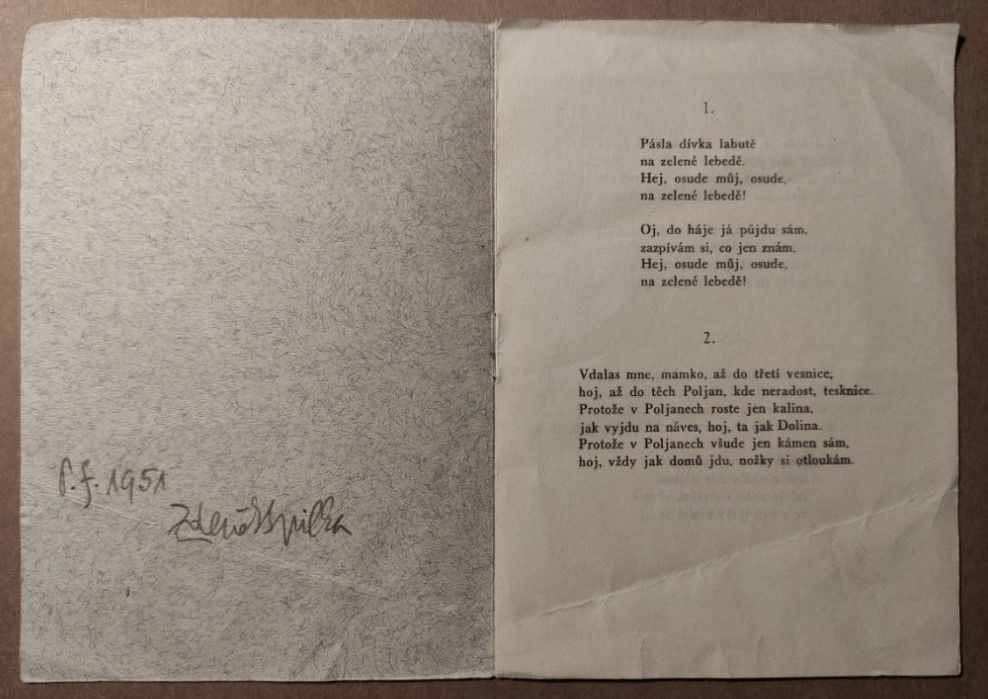 P. f. 1951
Zdeněk Spilka
1.
Pásla dívka labutě
na zelené lebedě.
Hej, osude můj, osude,
na zelené lebedě!
Oj, do háje já půjdu sám,
zazpívám si, co jen znám.
Hej, osude můj, osude,
na zelené lebedě!
2.
Vdalas mne, mamko, až do třetí vesnice,
hoj, až do těch Poljan, kde neradost, tesknice.
Protože v Poljanech roste jen kalina,
jak vyjdu na náves, hoj, ta jak Dolina.
Protože v Poljanech všude jen kámen sám,
hoj, vždy jak domů jdu, nožky si otloukám.